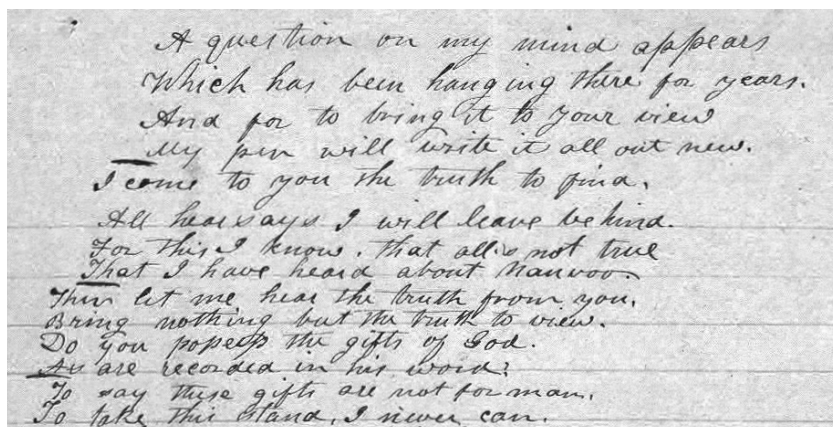 A question on my mind appears
Which has been hanging there for years.
And for to bring it to your view
My pen will write it all out new.
I come to you the truth to find,
All hearsays I will leave behind.
For this I know. that all is not true
That I have heard about Nauvoo.
Then let me hear the truth from you,
Bring nothing but the truth to view.
Do you possess the gifts of God.
As are recorded in his word?
To say these gifts are not for man,
To take this stand, I never can.